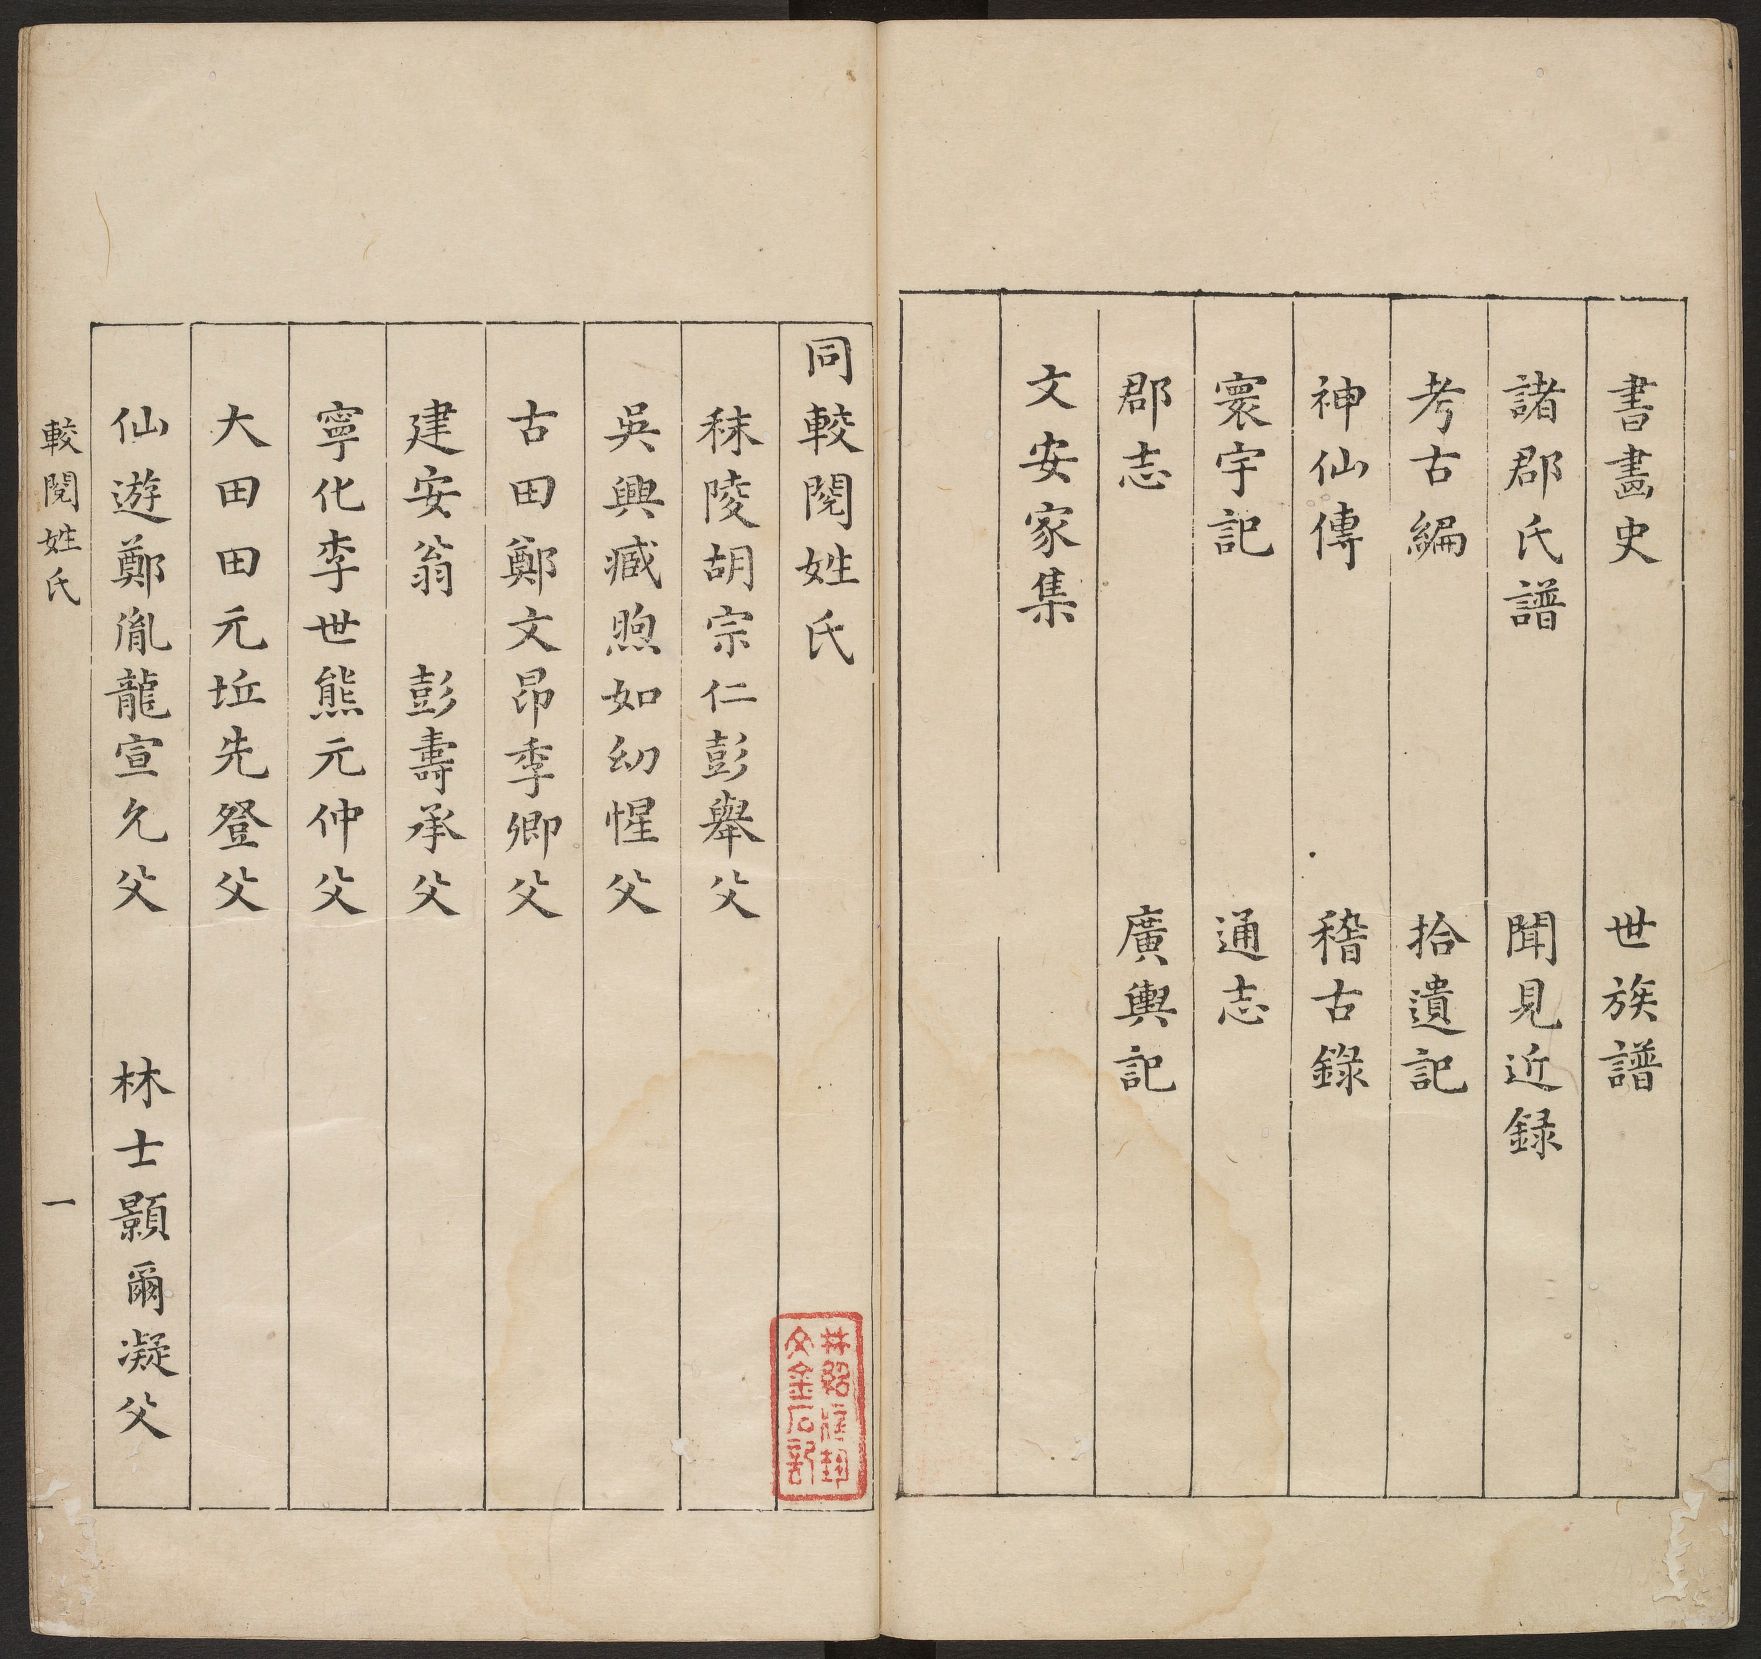 書畫史 世族譜
諸郡氏譜 聞見近録
考古編 拾遺記
神仙傳 稽古錄
寰宇記 通志
郡志 廣輿記
文安家集
同較閱姓氏
秣陵胡宗仁彭舉父
吳興臧煦如幼惺父
古田鄭文昂季卿父
建安翁 彭壽承父
寧化李世熊元仲父
大田田元坵先登父
仙遊鄭胤龍宣允父 林士顥爾凝父
較閱姓氏 一